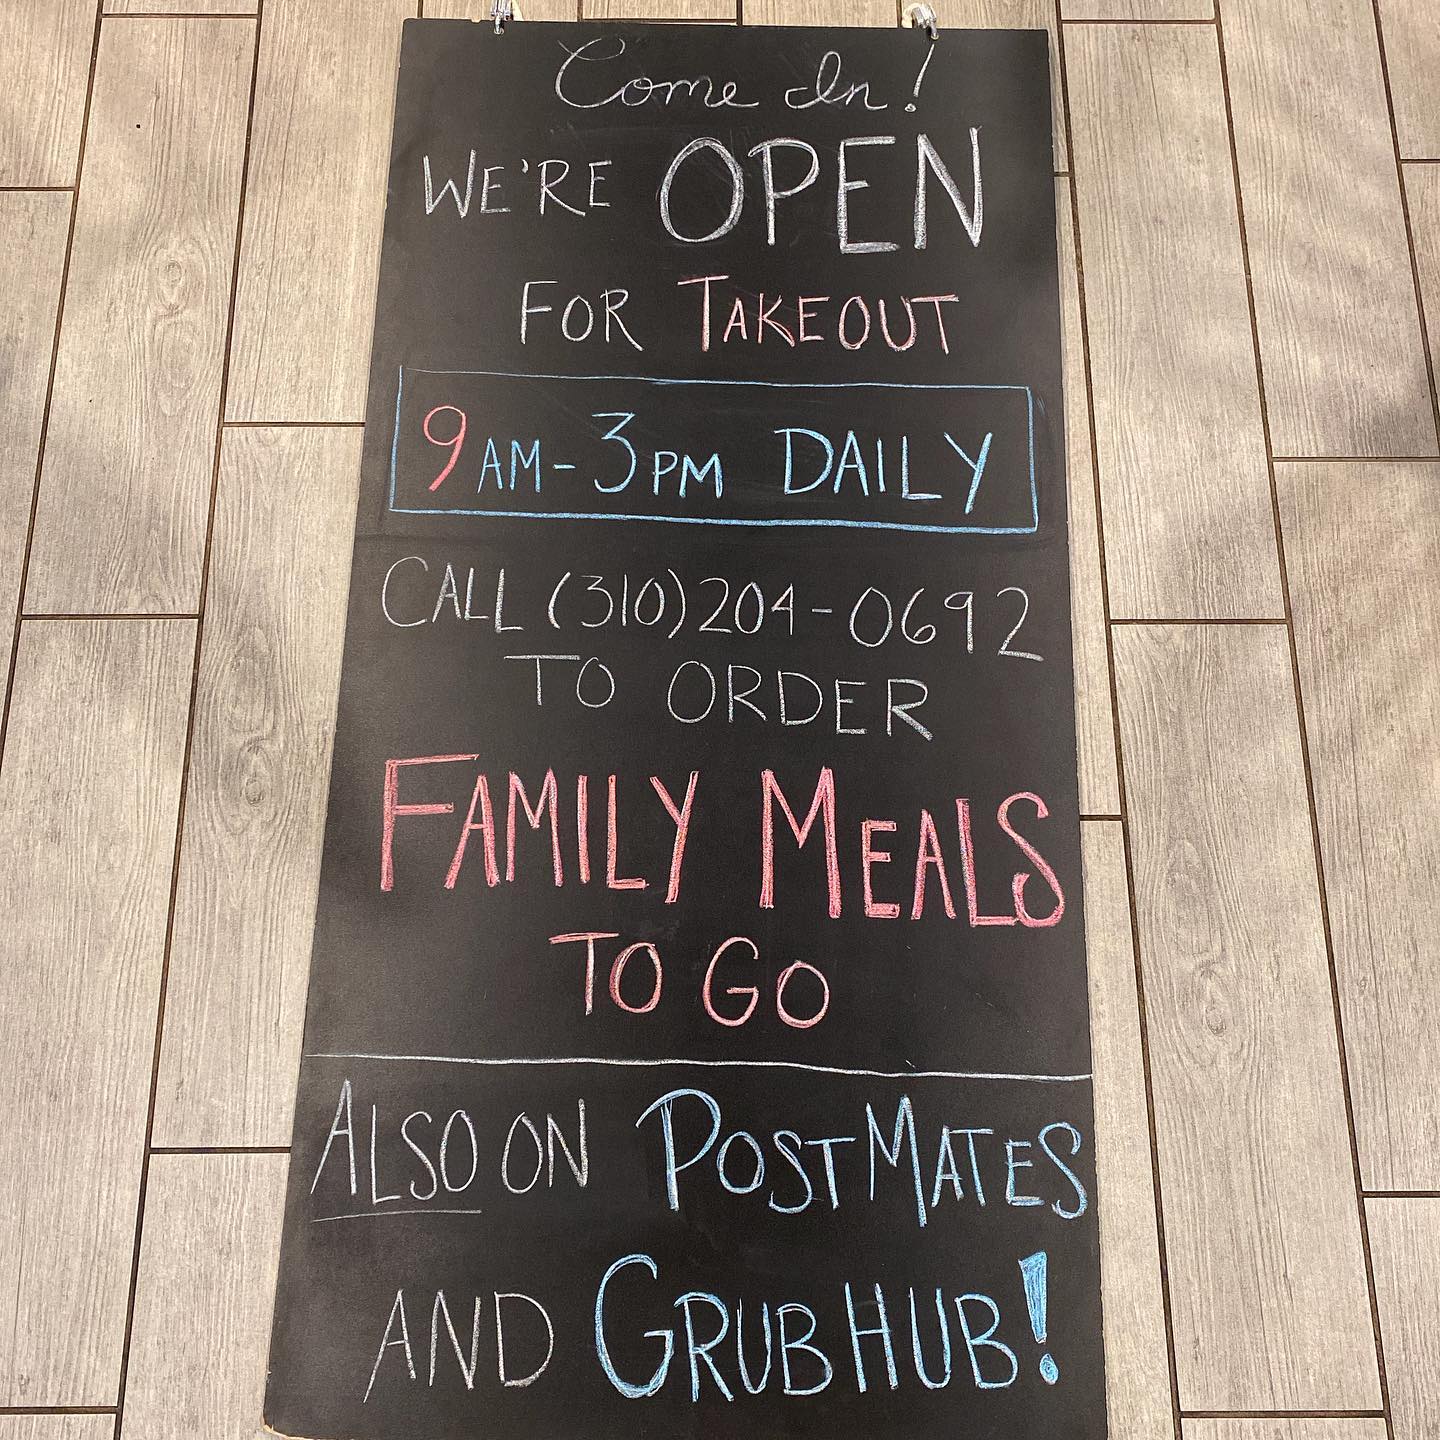 Come In!
WE'RE OPEN
FOR TAKEOUT
9AM-3PM DAILY
CALL (310)204-0692
TO ORDER
FAMILY MEALS
TO GO
ALSO ON POSTMATES
AND GRUBHUB!